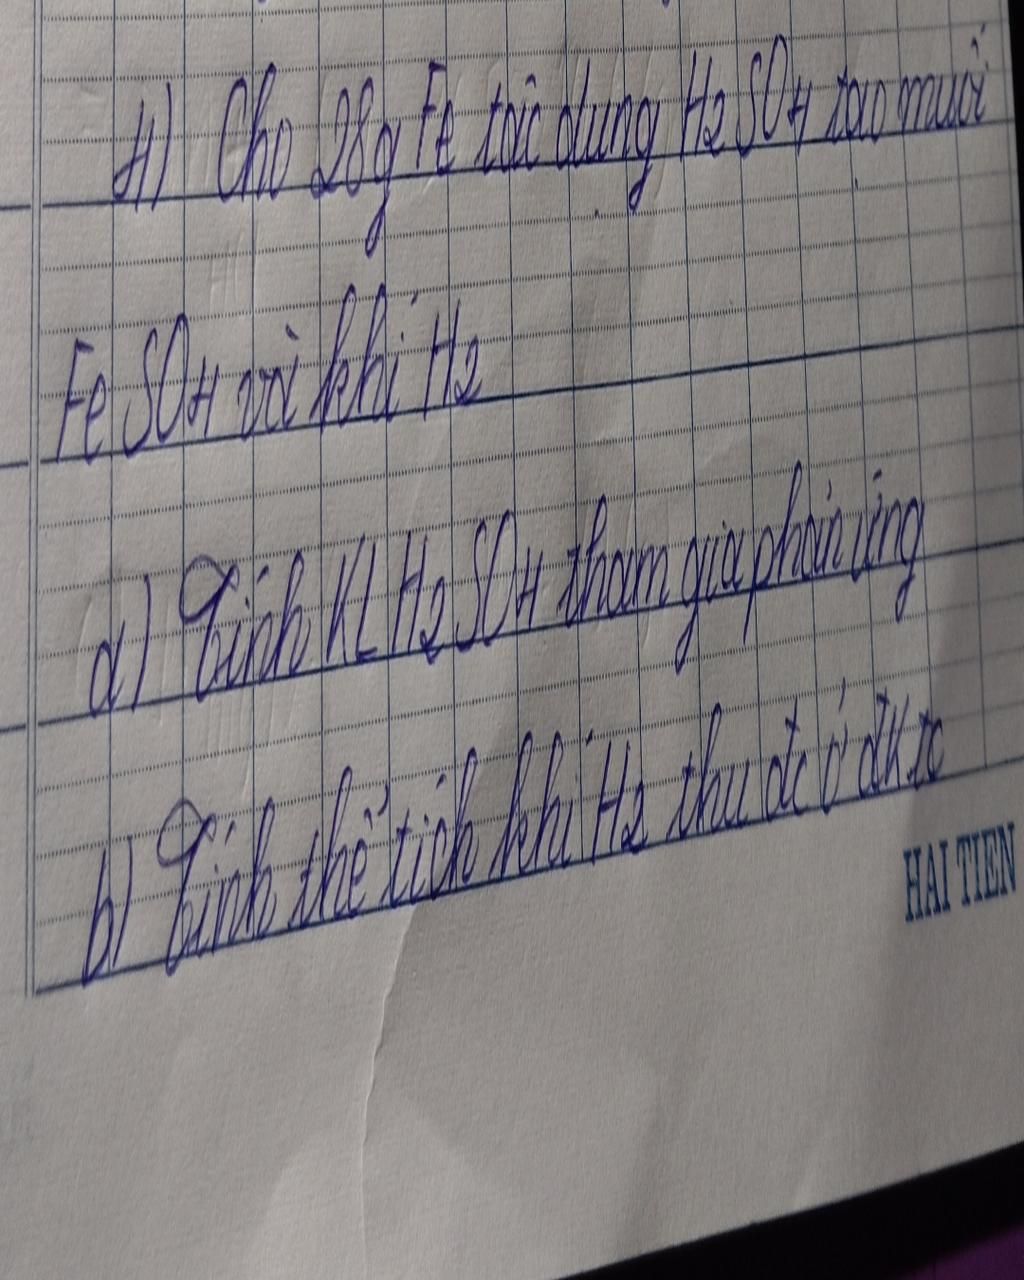 4) Cho 28g Fe tác dụng H2SO4 tạo muối
FeSO4 và khí H2
a) Tính KL H2SO4 tham gia phản ứng
b) Tính thể tích khí H2 thu đc ở đktc
HAI TIEN